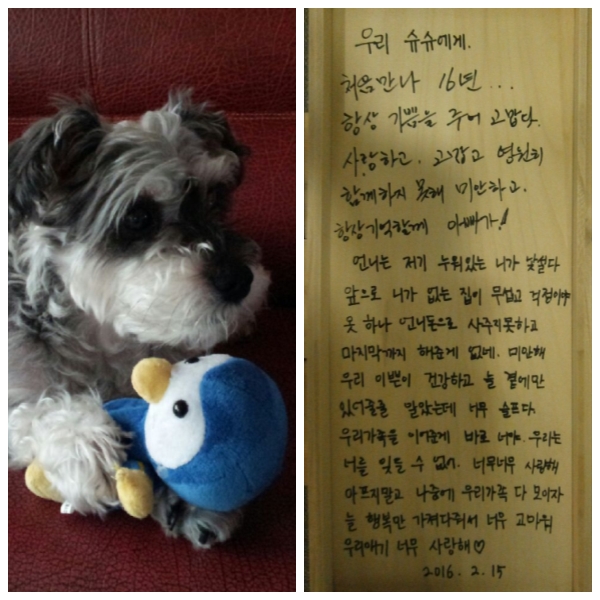 우리 슈슈에게.
처음만나 16년...
항상 기쁨을 주어 고맙다.
사랑하고. 고맙고 영원히
함께하지 못해 미안하고.
항상기억할께 아빠가!
언니는 저기 누워있는 니가 낯설다
앞으로 니가 없는 집이 무섭고 걱정이야
옷 하나 언니돈으로 사주지못하고
마지막까지 해준게 없네. 미안해
우리 이쁜이 건강하고 늘 곁에만
있어줄줄 알았는데 너무 슬프다.
우리가족을 이어준게 바로 너야. 우리는
너를 잊을 수 없어. 너무너무 사랑해
아프지말고 나중에 우리가족 다 모이자
늘 행복만 가져다줘서 너무 고마워
우리애기 너무 사랑해♡
2016. 2. 15